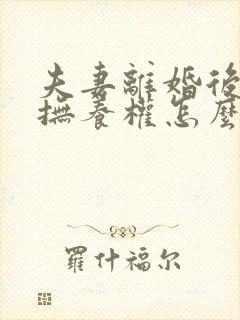 夫妻離婚後
撫養權怎麼
羅什福尔